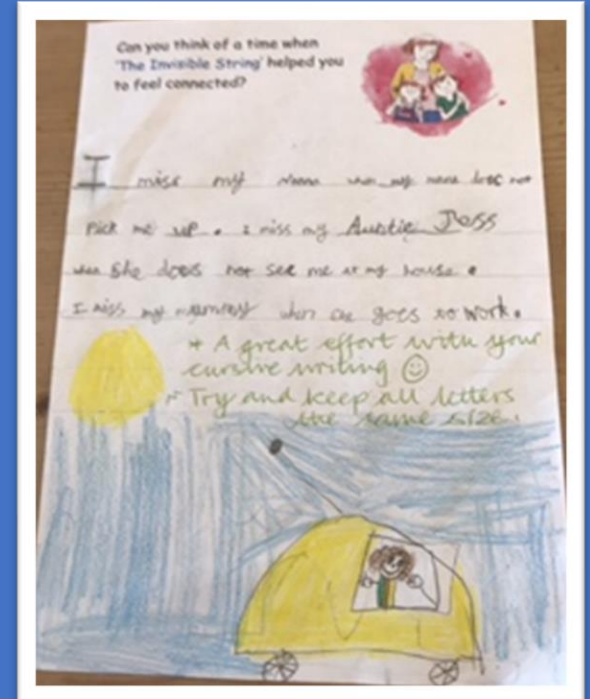 Can you think of a time when
'The Invisible String' helped you
to feel connected?
I miss my Nana when my nana does not
Pick me up. I miss my Auntie Jess
when She does not see me at my house.
I miss my mummy when she goes to work.
* A great effort with your
cursive writing ☺
* Try and keep all letters
the same size.